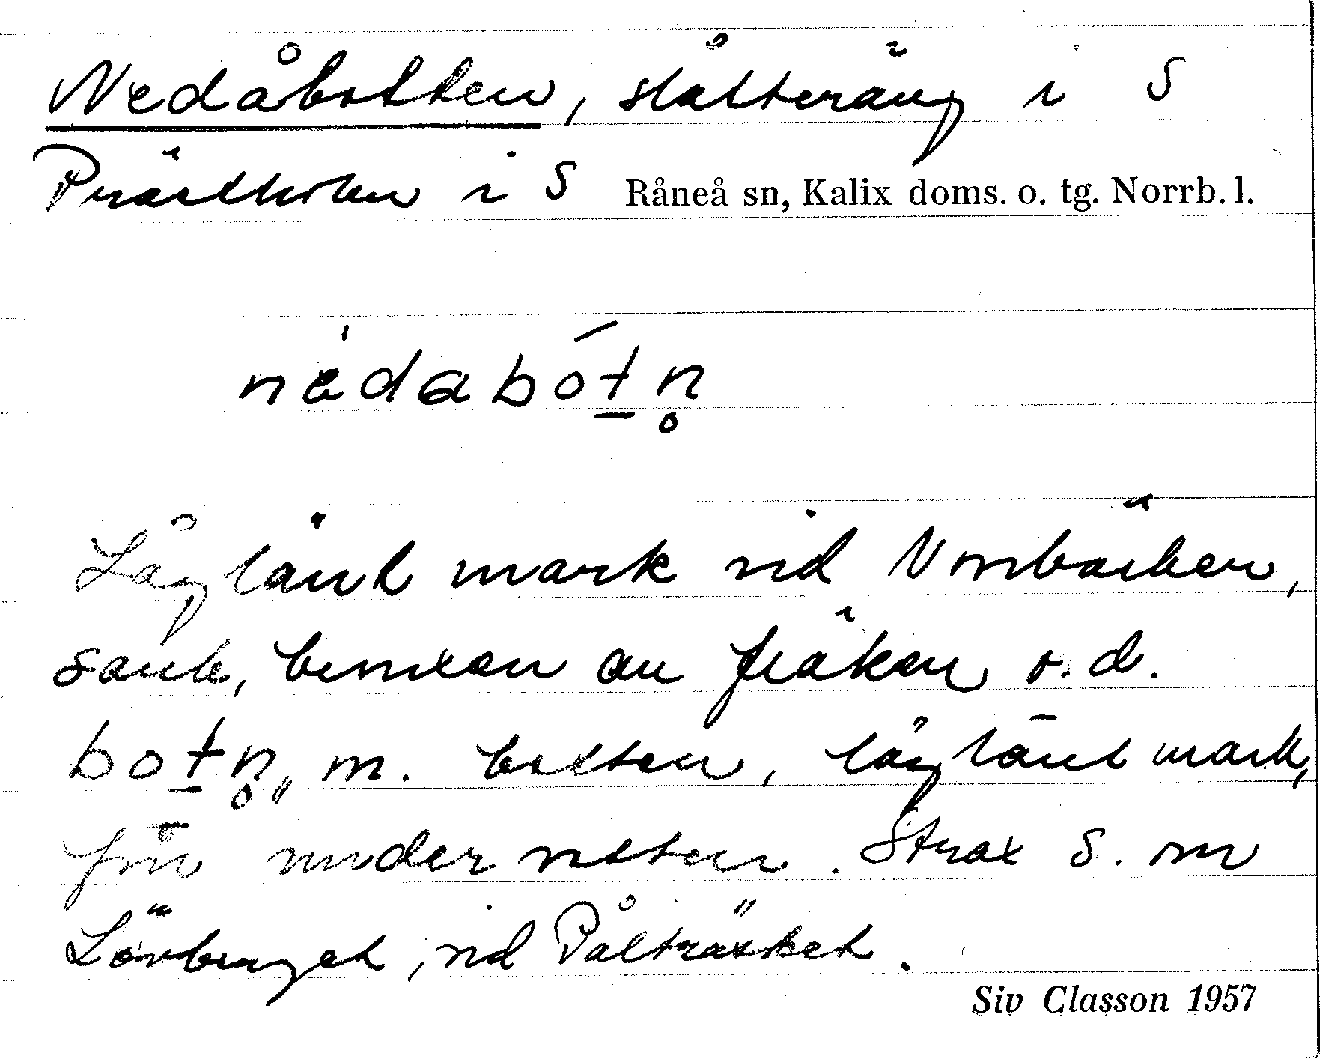 Nedåbotten, slåtteräng i S
Prästholm i S Råneå sn, Kalix doms. o. tg. Norrb. l.
nèdabót̲n̥
Låglänt mark vid Norrbäcken,
sank, bevuxen av fräken o. d.
bot̲n̥, m. botten, låglänt mark,
förr under vatten. Strax S. om
Lövberget, vid Pålträsket.
Siv Classon 1957